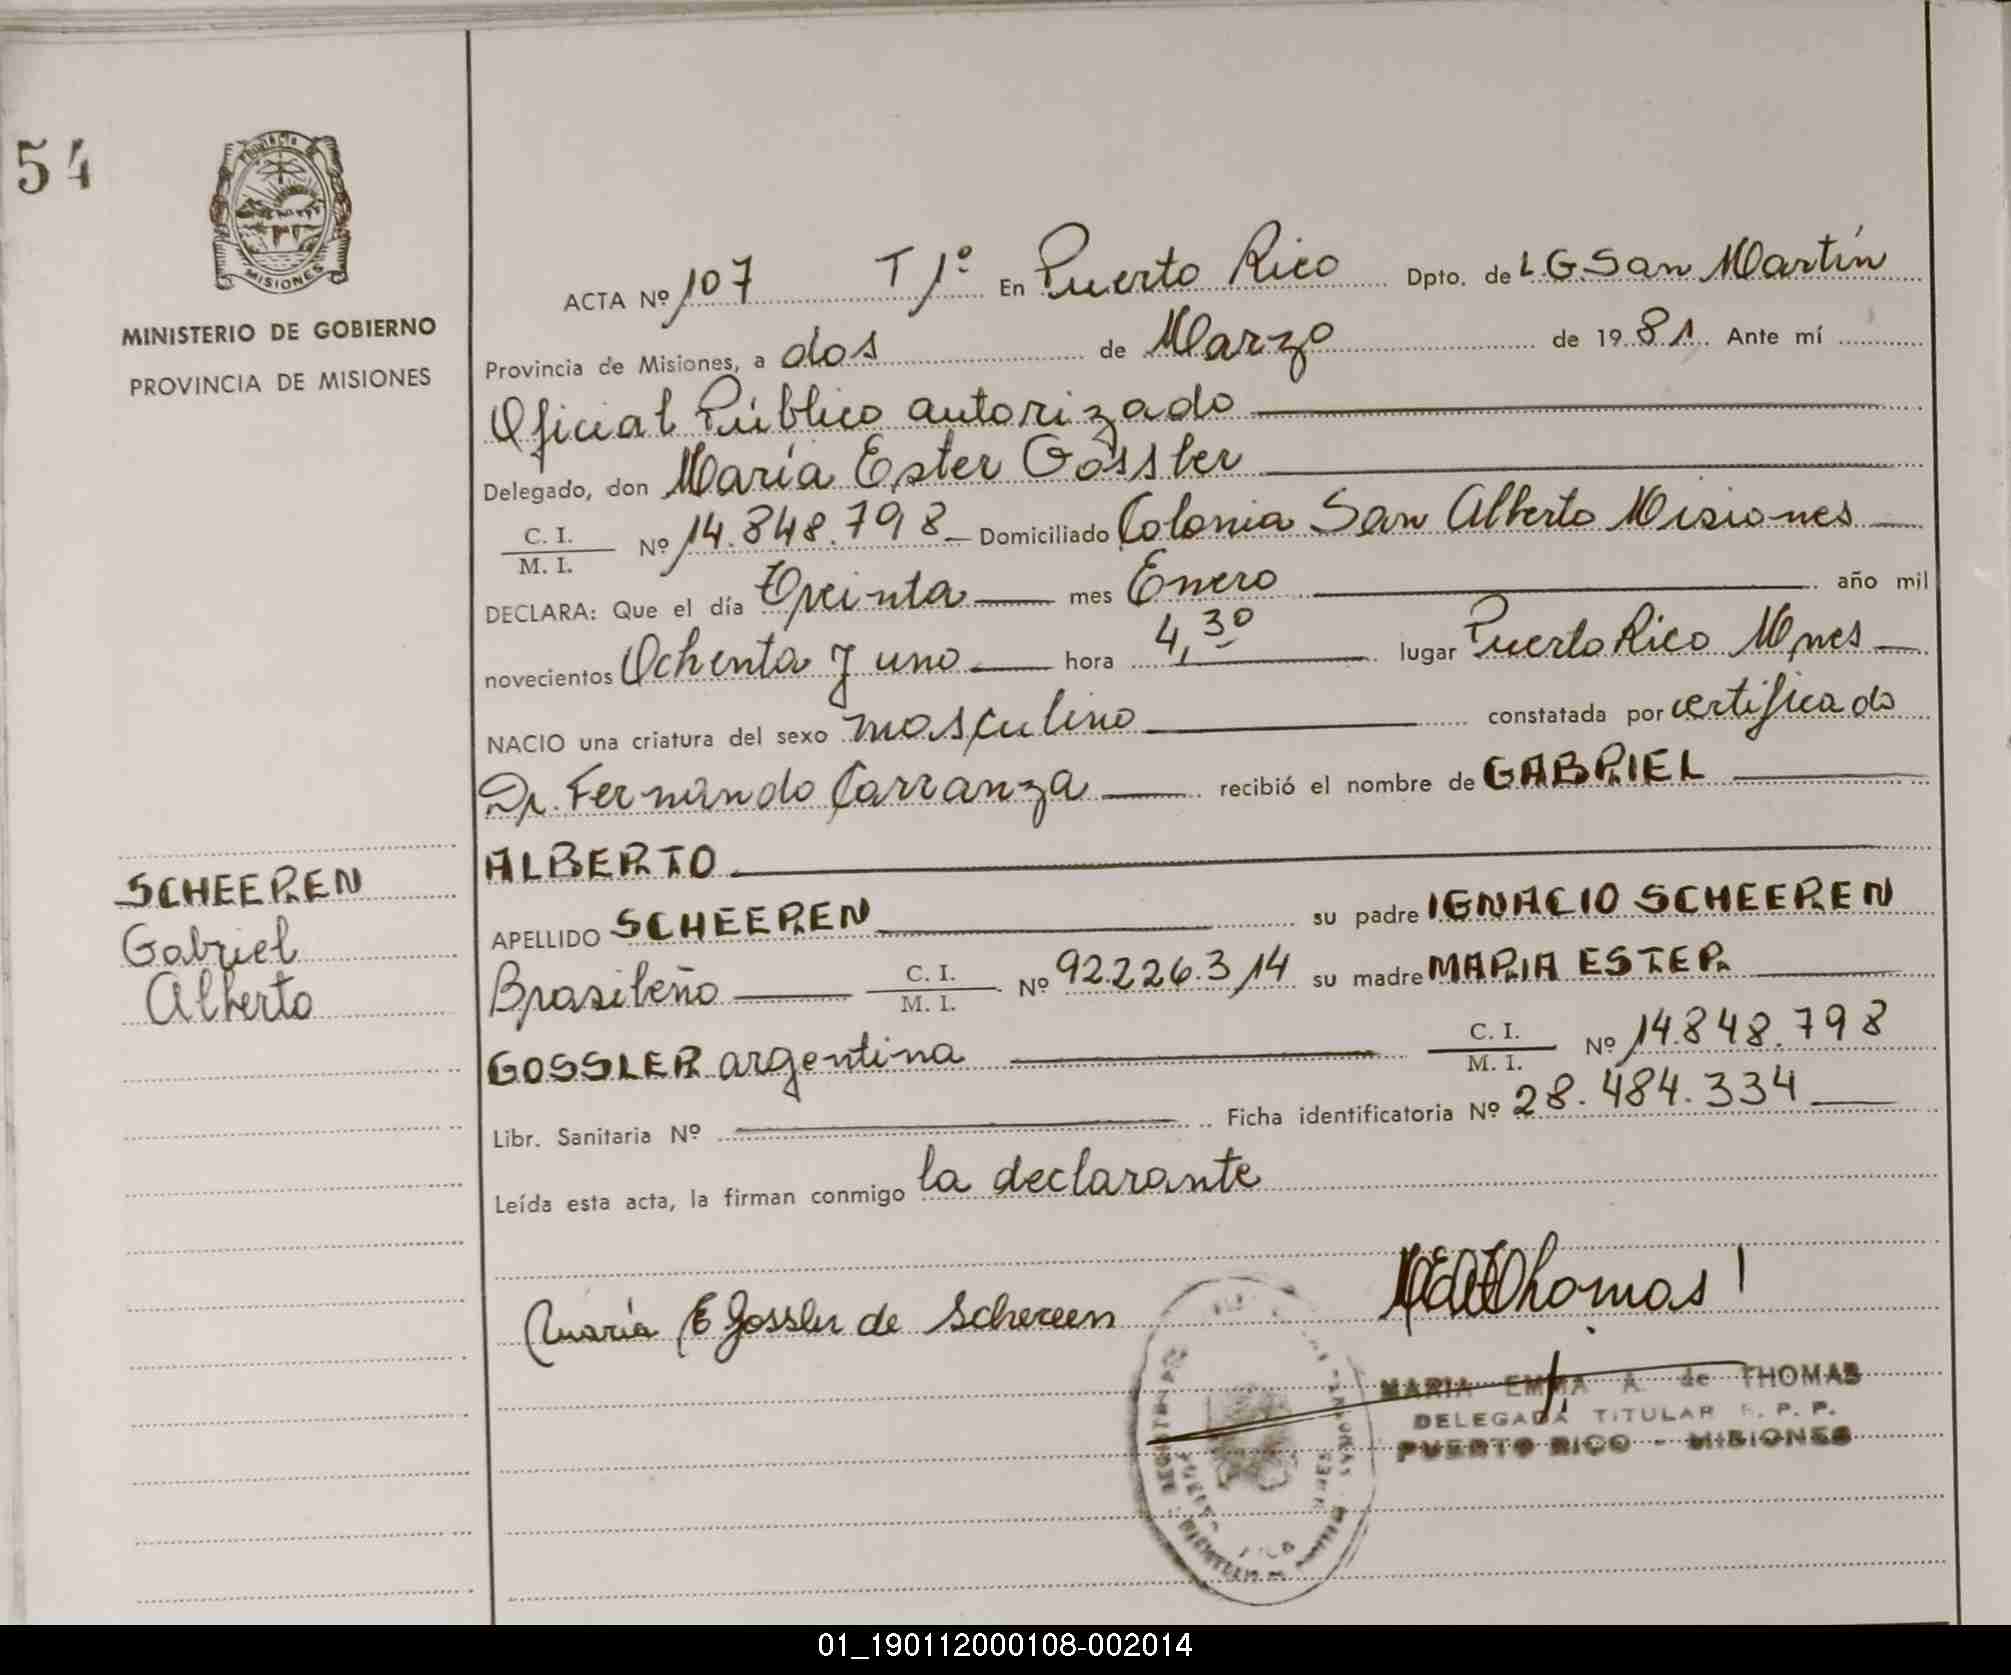 54
PROVINCIA DE
MISIONES
MINISTERIO DE GOBIERNO
PROVINCIA DE MISIONES
SCHEEREN
Gabriel
Alberto
ACTA Nº 107 T 1º En Puerto Rico Dpto. de L.G.San Martín
Provincia de Misiones, a dos de Marzo de 1981. Ante mí
Oficial Público autorizado
Delegado, don María Ester Gossler
C. I.
M. I. Nº 14.848.798 Domiciliado Colonia San Alberto Misiones
DECLARA: Que el día Treinta mes Enero año mil
novecientos Ochenta y uno hora 4,30 lugar Puerto Rico Mnes
NACIO una criatura del sexo masculino constatada por certificado
Dr. Fernando Carranza recibió el nombre de GABRIEL
ALBERTO
APELLIDO SCHEEREN su padre IGNACIO SCHEEREN
Brasileño C. I.
M. I. Nº 92.226.314 su madre MARIA ESTER
GOSSLER argentina C. I.
M. I. Nº 14.848.798
Libr. Sanitaria Nº Ficha identificatoria Nº 28.484.334
Leída esta acta, la firman conmigo la declarante
María E Gossler de Schereen
Thomas
MARIA EMMA A. de THOMAS
DELEGADA TITULAR R. P. P.
PUERTO RICO - MISIONES
01_190112000108-002014